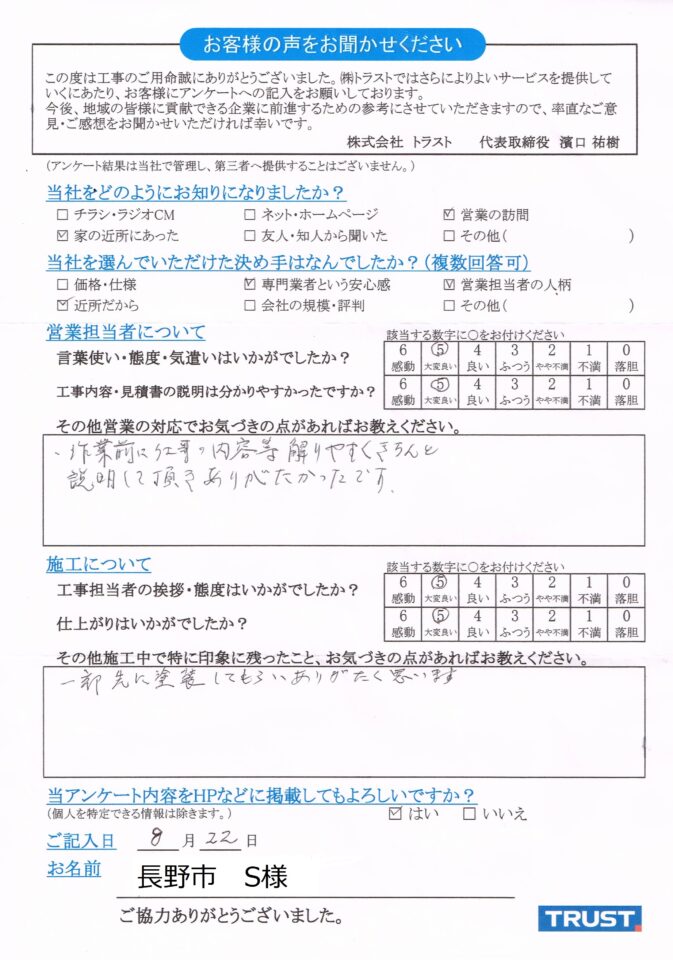 お客様の声をお聞かせください
この度は工事のご用命誠にありがとうございました。㈱トラストではさらによりよいサービスを提供して
いくにあたり、お客様にアンケートへの記入をお願いしております。
今後、地域の皆様に貢献できる企業に前進するための参考にさせていただきますので、率直なご意
見・ご感想をお聞かせいただければ幸いです。
株式会社 トラスト 代表取締役 濱口 祐樹
(アンケート結果は当社で管理し、第三者へ提供することはございません。)
当社をどのようにお知りになりましたか？
☐ チラシ・ラジオCM ☐ ネット・ホームページ ☑ 営業の訪問
☑ 家の近所にあった ☐ 友人・知人から聞いた ☐ その他( )
当社を選んでいただけた決め手はなんでしたか？(複数回答可)
☐ 価格・仕様 ☑ 専門業者という安心感 ☑ 営業担当者の人柄
☑ 近所だから ☐ 会社の規模・評判 ☐ その他( )
営業担当者について 該当する数字に○をお付けください
言葉使い・態度・気遣いはいかがでしたか？ 6 ⑤ 4 3 2 1 0
感動 大変良い 良い ふつう やや不満 不満 落胆
工事内容・見積書の説明は分かりやすかったですか？ 6 ⑤ 4 3 2 1 0
感動 大変良い 良い ふつう やや不満 不満 落胆
その他営業の対応でお気づきの点があればお教えください。
、作業前に仕事の内容等解りやすくきちんと
説明して頂きありがたかったです.
施工について 該当する数字に○をお付けください
工事担当者の挨拶・態度はいかがでしたか？ 6 ⑤ 4 3 2 1 0
感動 大変良い 良い ふつう やや不満 不満 落胆
仕上がりはいかがでしたか？ 6 ⑤ 4 3 2 1 0
感動 大変良い 良い ふつう やや不満 不満 落胆
その他施工中で特に印象に残ったこと、お気づきの点があればお教えください。
一部先に塗装してもらいありがたく思います
当アンケート内容をHPなどに掲載してもよろしいですか？
(個人を特定できる情報は除きます。) ☑ はい ☐ いいえ
ご記入日 8 月 22 日
お名前 長野市 S様
ご協力ありがとうございました。
TRUST.